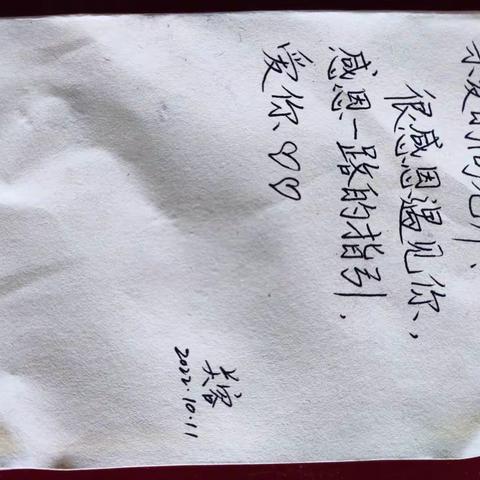 亲爱的
很感恩遇见你、，
感恩一路的指引．
爱你、♡♡
美容
2022.10.11